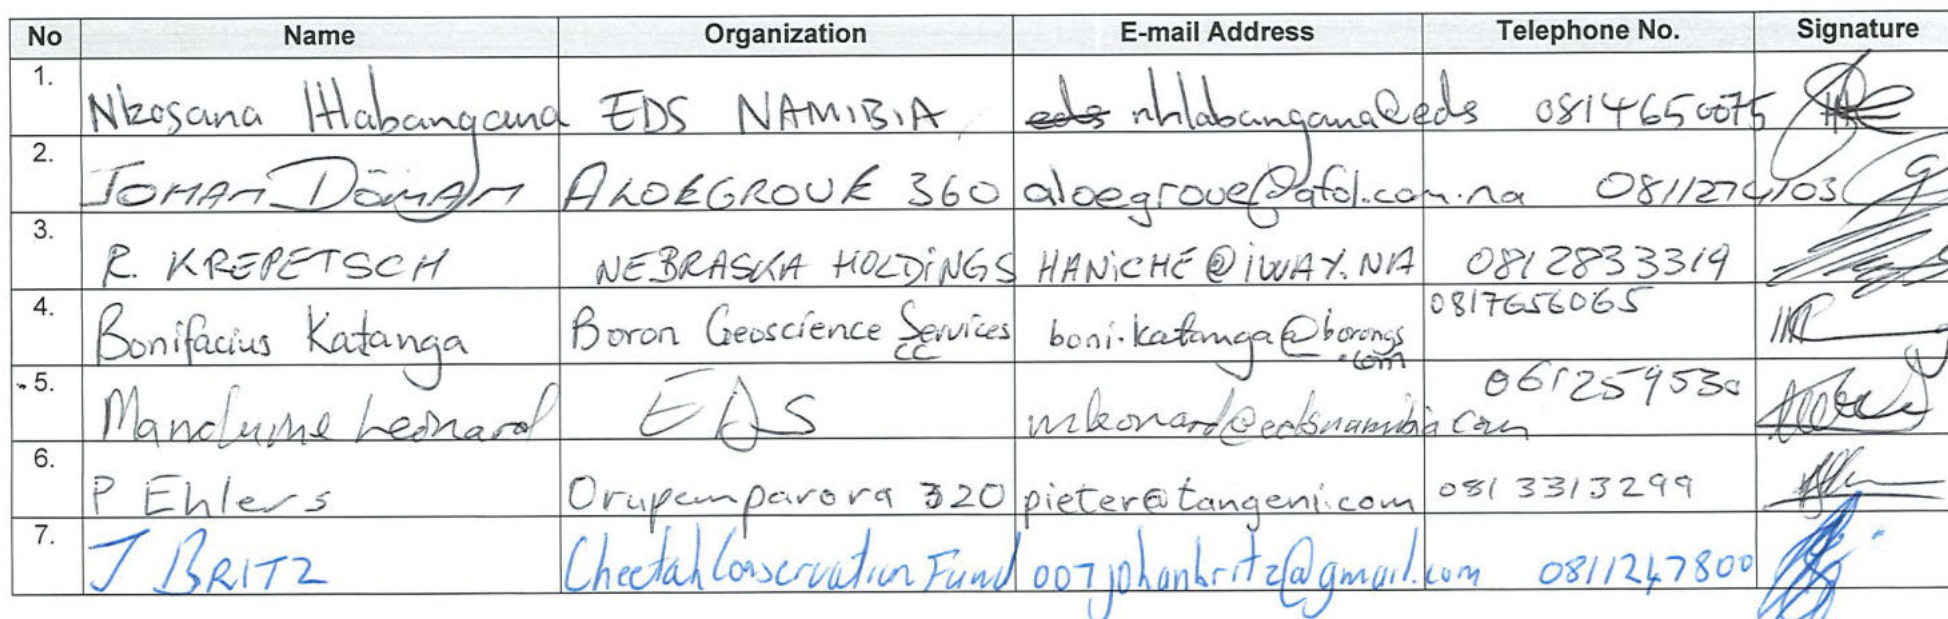 No Name Organization E-mail Address Telephone No. Signature
1. Nkosana Hlabangana EDS NAMIBIA eds nhlabangana@eds 0814650075
2. JOHAN DÖMAN ALOEGROVE 360 aloegrove@afol.com.na 0811274103
3. R. KREPETSCH NEBRASKA HOLDINGS HANICHE@IWAY.NA 0812833319
4. Bonifacius Katanga Boron Geoscience Services cc boni.katanga@borongs.com 0817656065
5. Mandume Leonard EDS mleonard@edsnamibia.com 061259530
6. P Ehlers Orupemparora 320 pieter@tangeni.com 0813313299
7. J BRITZ Cheetah Conservation Fund 007johanbritz@gmail.com 0811247800